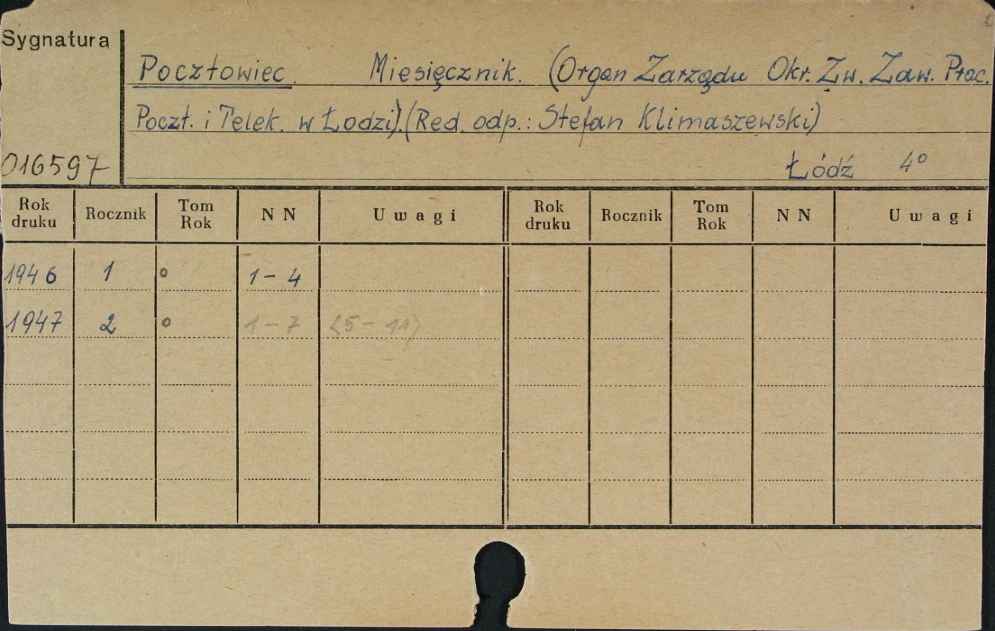 Sygnatura
Pocztowiec. Miesięcznik. (Organ Zarządu Okr. Zw. Zaw. Prac.
Poczt. i Telek. w Łodzi).(Red. odp.: Stefan Klimaszewski)
016597 Łódź 4°
Rok druku Rocznik Tom Rok N N Uwagi Rok druku Rocznik Tom Rok N N Uwagi
1946 1 ° 1-4
1947 2 ° 1-7 (5-11)